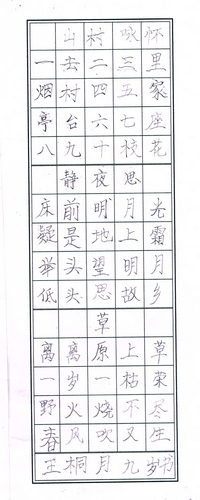 山村咏怀
一去二三里
烟村四五家
亭台六七座
八九十枝花
静夜思
床前明月光
疑是地上霜
举头望明月
低头思故乡
草
离离原上草
一岁一枯荣
野火烧不尽
春风吹又生
王桐月九岁书